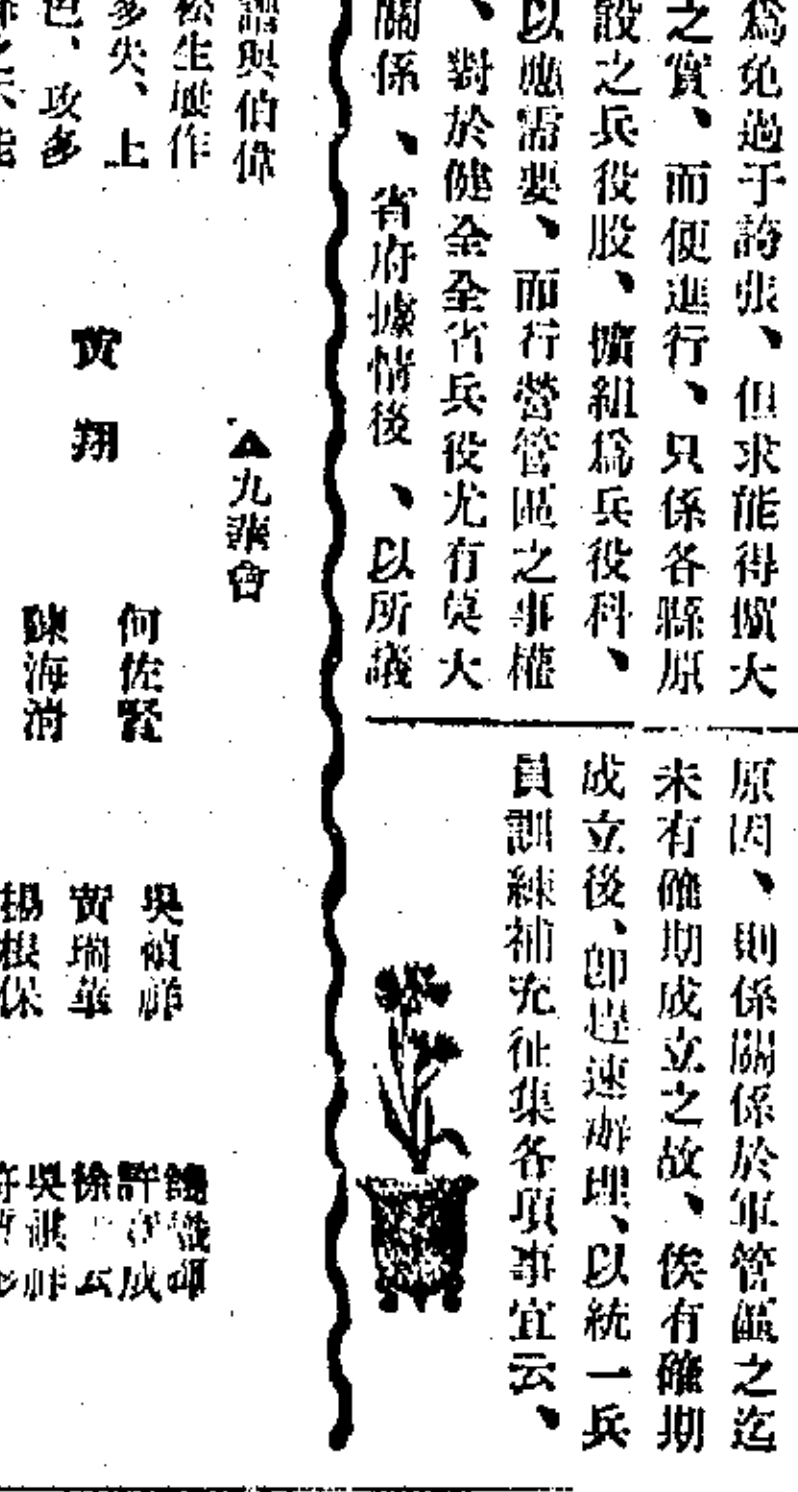 爲免過于誇張、但求能得擴大
之實、而便進行、只係各縣原
設之兵役股、擴組爲兵役科、
以應需要、而行營管區之事權
、對於健全全省兵役尤有莫大
關係、省府據情後、以所議
原因、則係關係於軍管區之迄
未有確期成立之故、俟有確期
成立後、卽趕速辦理、以統一兵
員訓練補充征集各項事宜云、
與伯偉
松生 作
多失、上
色、攻多
▲九 會
黄翔
何佐賢
陳海
吳 祥
黄瑞華
楊根保
許 成
徐 云
吳祺祥